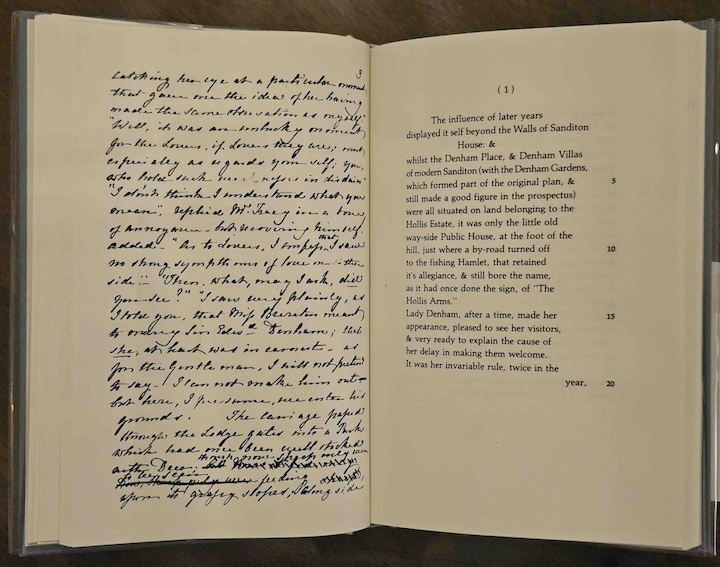 3
catching her eye at a particular moment
that gave me the idea of her having
made the same observation as myself."
"Well, it was an unlucky moment
for the Lovers, if Lovers they are; most
especially as regards your self; you,
who hold such in disdain"
"I don't think I understand what you
mean", replied Mr. Tracy in a tone
of annoyance - but recovering himself,
added - "As to Lovers, I confess, that I saw
no strong symptoms of love on either
side." "Then, what, may I ask, did
you see?" "I saw very plainly, as
I told you, that Miss Brereton meant
to marry Sir Edwd. Denham; that
she, at least, was in earnest - as
for the Gentleman, I will not pretend
to say - I can not make him out -
but here, I presume, we enter his
grounds. The carriage passed
through the Lodge gates into a Park
which had once been well stocked
with Deer, though now sheep only were
feeding
upon its grassy slopes; along side
(1)
The influence of later years
displayed it self beyond the Walls of Sanditon
House: &
whilst the Denham Place, & Denham Villas
of modern Sanditon (with the Denham Gardens,
which formed part of the original plan, & 5
still made a good figure in the prospectus)
were all situated on land belonging to the
Hollis Estate, it was only the little old
way-side Public House, at the foot of the
hill, just where a by-road turned off 10
to the fishing Hamlet, that retained
it's allegiance, & still bore the name,
as it had once done the sign, of "The
Hollis Arms."
Lady Denham, after a time, made her 15
appearance, pleased to see her visitors,
& very ready to explain the cause of
her delay in making them welcome.
It was her invariable rule, twice in the
year, 20